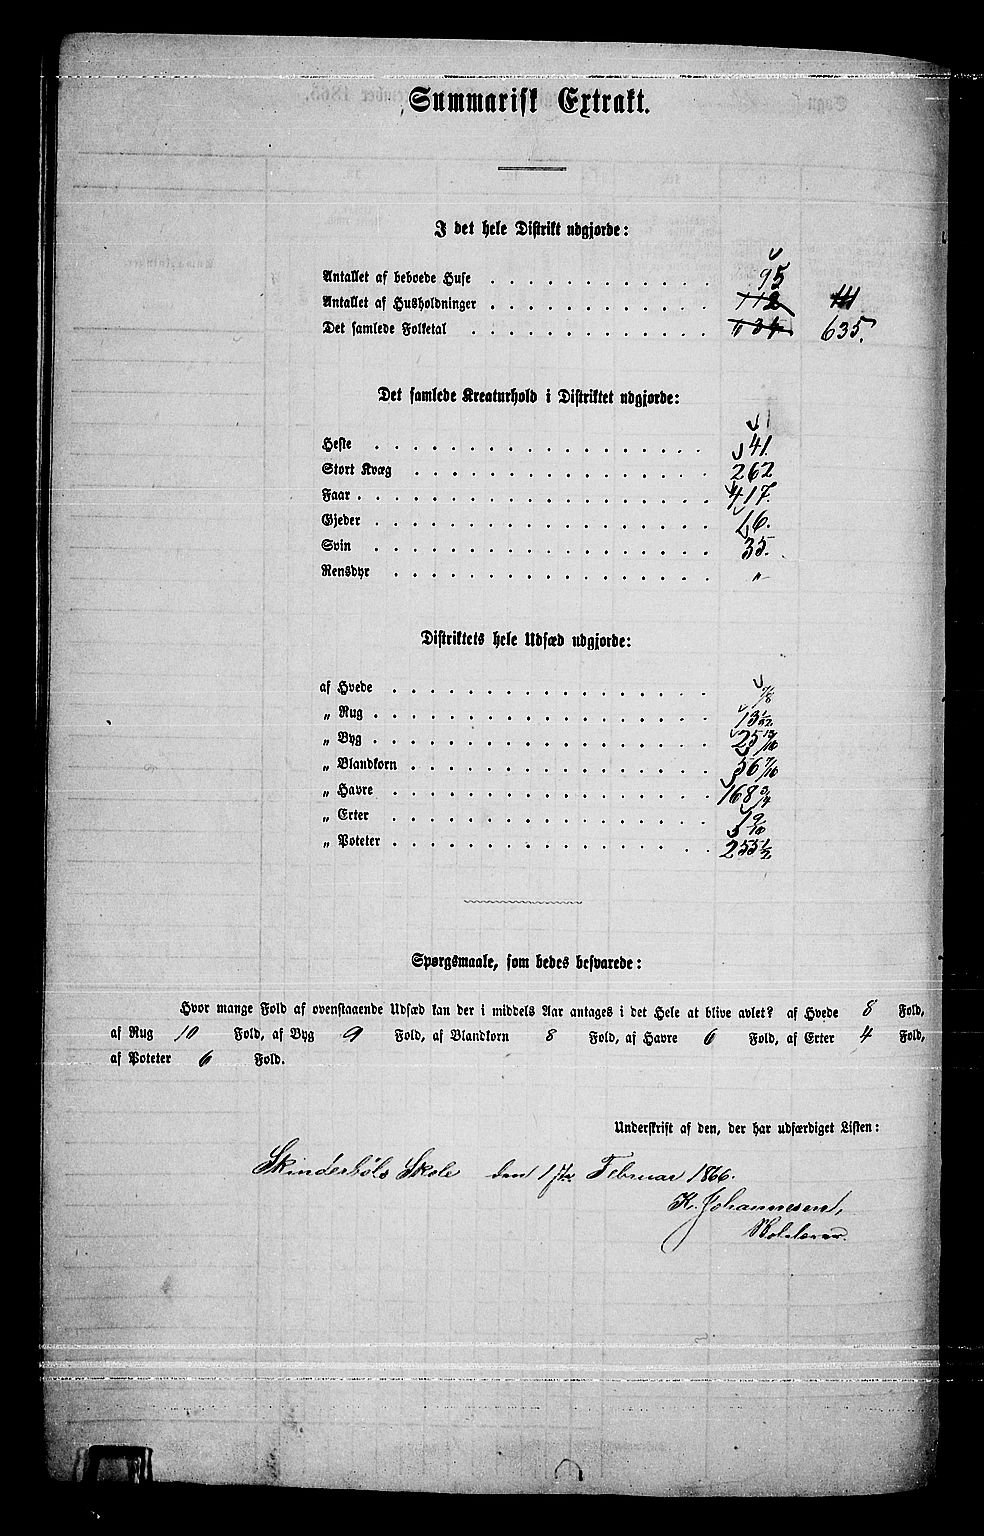 Summarisk Extrakt.
I det hele Distrikt udgjorde:
Antallet af beboede Huse 95
Antallet af Husholdninger 112 111
Det samlede Folketal 634 635.
Det samlede Kreaturhold i Distriktet udgjorde:
Heste 41.
Stort Kvæg 262
Faar 417.
Gjeder 16.
Svin 35.
Rensdyr "
Distriktets hele Udsæd udgjorde:
af Hvede
„ Rug 13 1/32
„ Byg 25
„ Blandkorn 56 7/16
„ Havre 168 3/4
„ Erter 1 9/16
„ Poteter 255 1/2
Spørgsmaale, som bedes besvarede:
Hvor mange Fold af ovenstaaende Udsæd kan der i middels Aar antages i det Hele at blive avlet? af Hvede 8 Fold,
af Rug 10 Fold, af Byg 9 Fold, af Blandkorn 8 Fold, af Havre 6 Fold, af Erter 4 Fold,
af Poteter 6 Fold.
Underskrift af den, der har udfærdiget Listen:
Skole den 17de Februar 1866.
K. Johannesen,